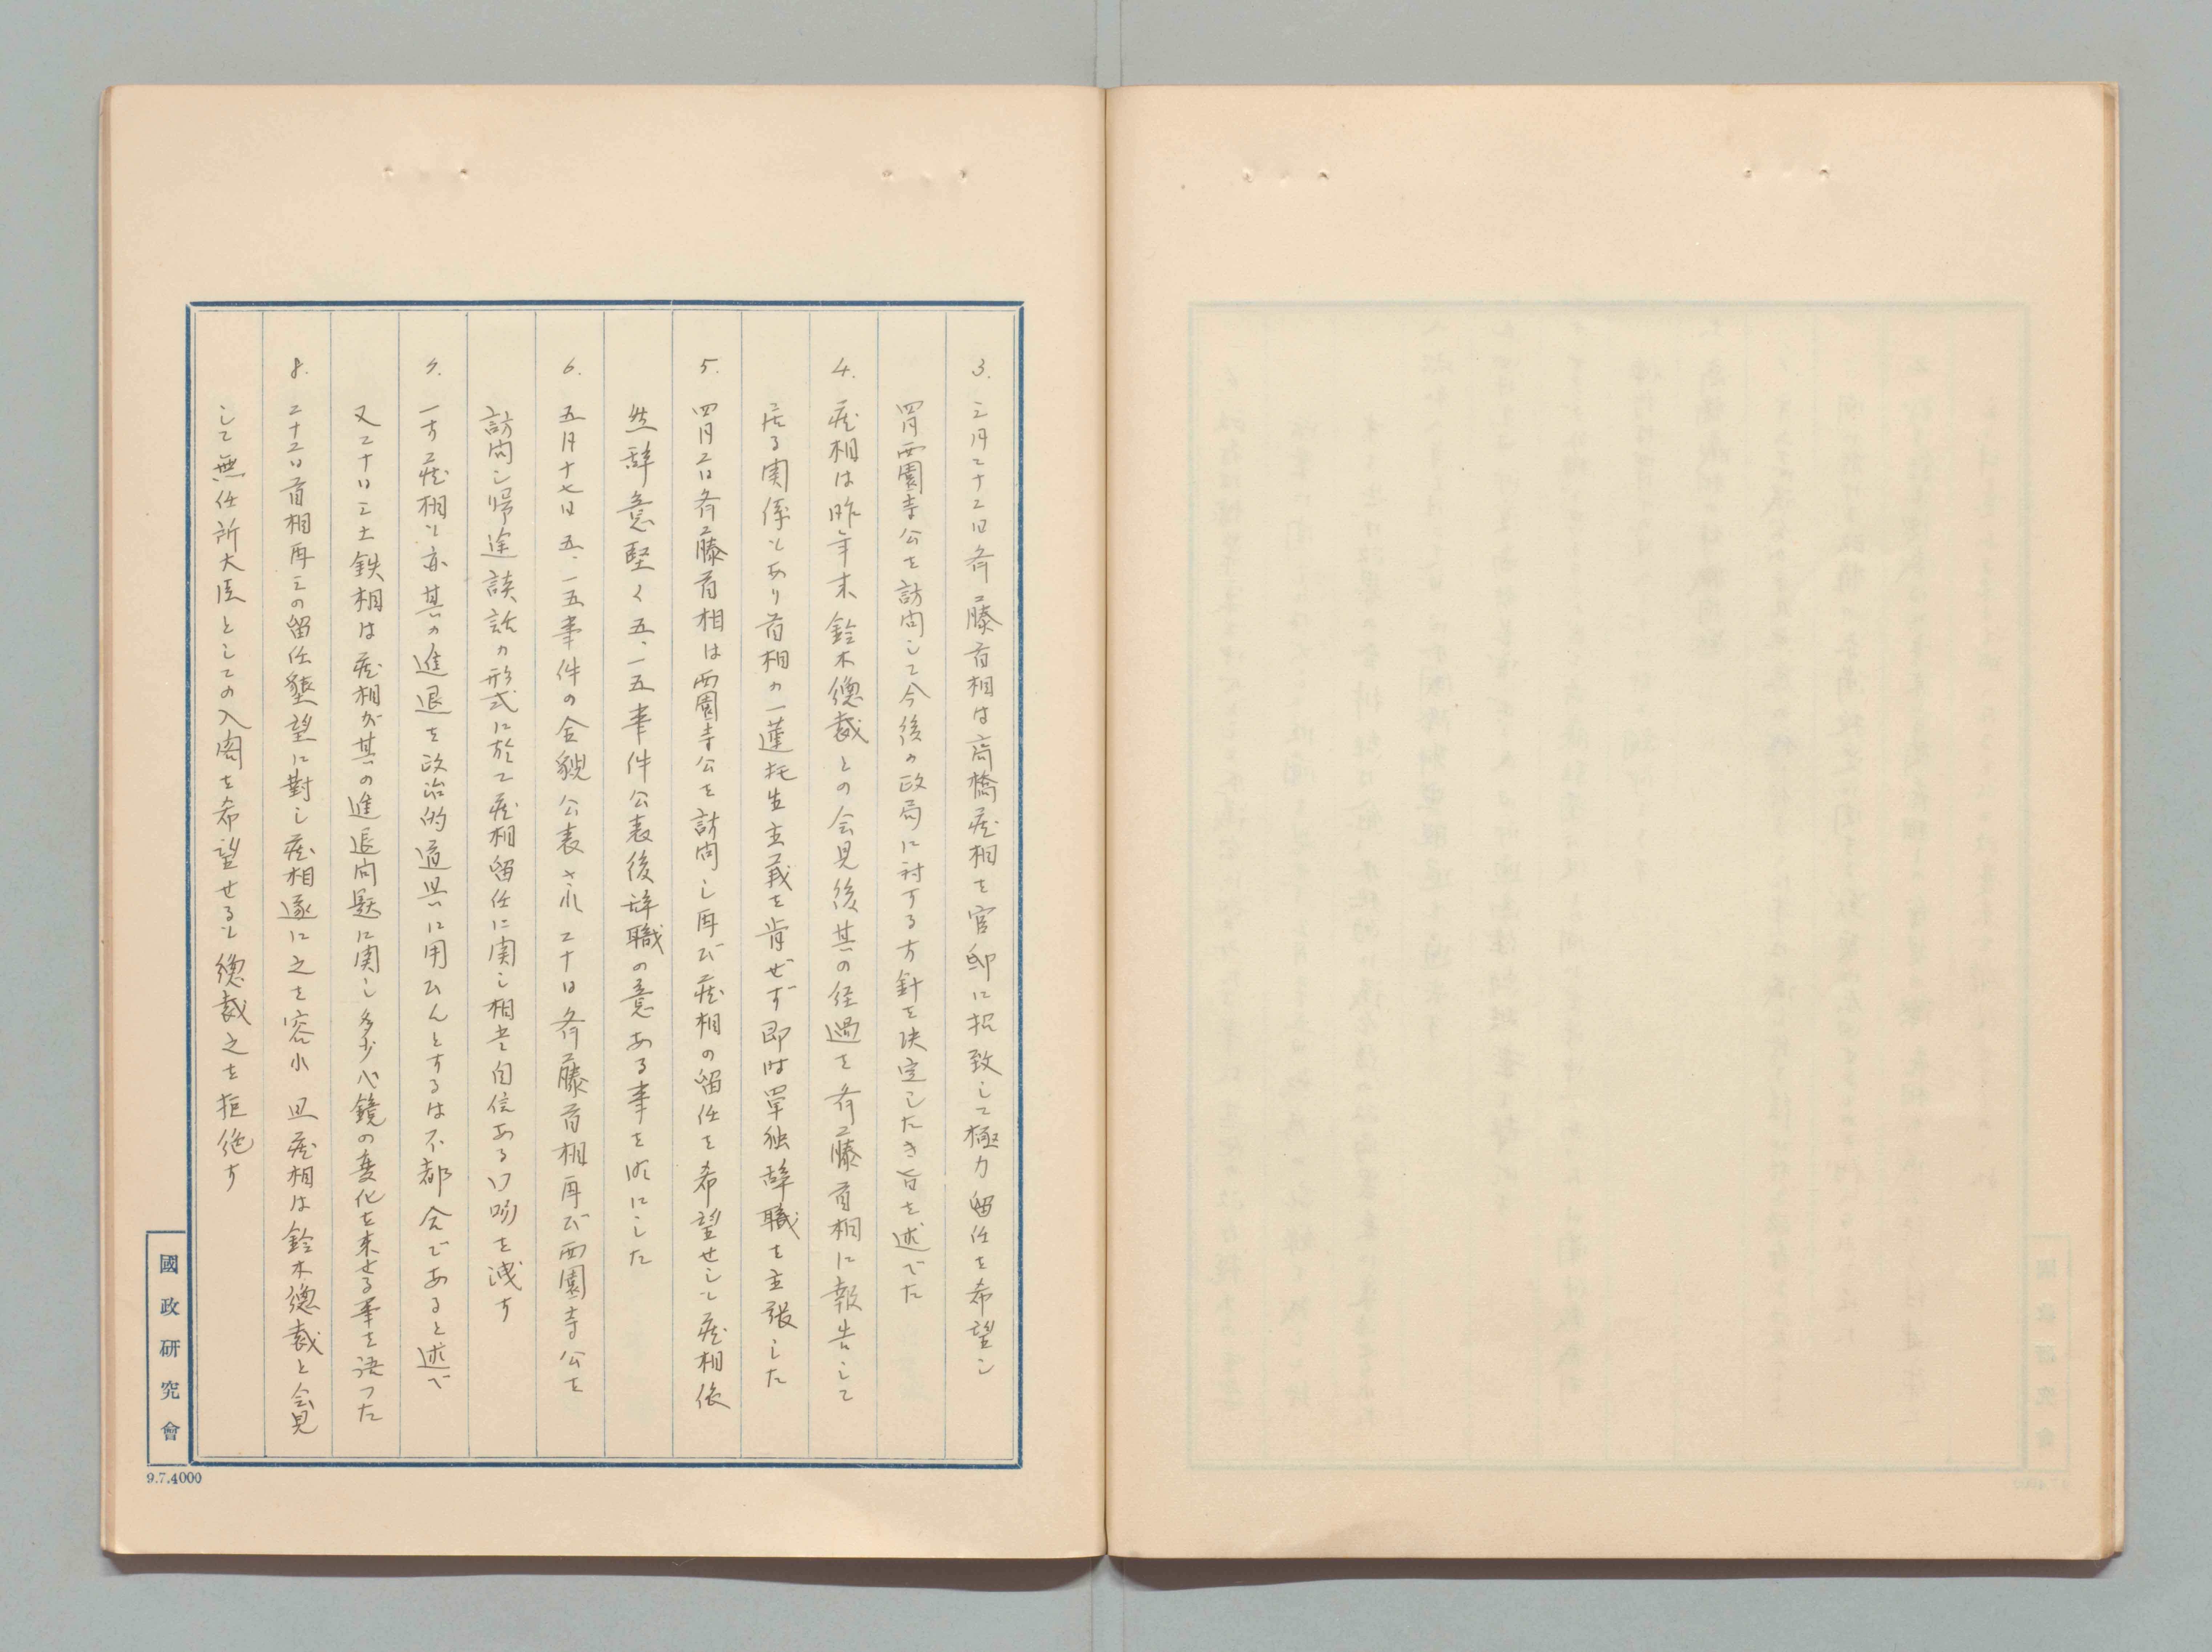 3. 三月二十二日斉藤首相は高橋蔵相を官邸に招致して極力留任を希望し
西園寺公を訪問して今後の政局に対する方針を決定したき旨を述べた
4. 蔵相は昨年末鈴木總裁との会見後其の経過を斉藤首相に報告して
居る関係もあり首相の一蓮托生主義を肯ぜず即時単独辞職を主張した
5. 四月二日斉藤首相は西園寺公を訪問し再び蔵相の留任を希望せしも蔵相依
然辞意堅く五、一五事件公表後辞職の意ある事を明にした
6. 五月十七日五、一五事件の全貌公表され二十日斉藤首相再び西園寺公を
訪問し帰途談話の形式に於て蔵相留任に関し相当自信ある口吻を洩す
7. 一方蔵相も亦其の進退を政治的道具に用ひんとするは不都合であると述べ
又二十日三土鉄相は蔵相が其の進退問題に関し多少心鏡の変化を来せる事を語った
8. 二十二日首相再三の留任懇望に對し蔵相遂に之を容れ 且蔵相は鈴木總裁と会見
して無任所大臣としての入閣を希望せるも總裁之を拒絶す
國政研究會
9.7.4000